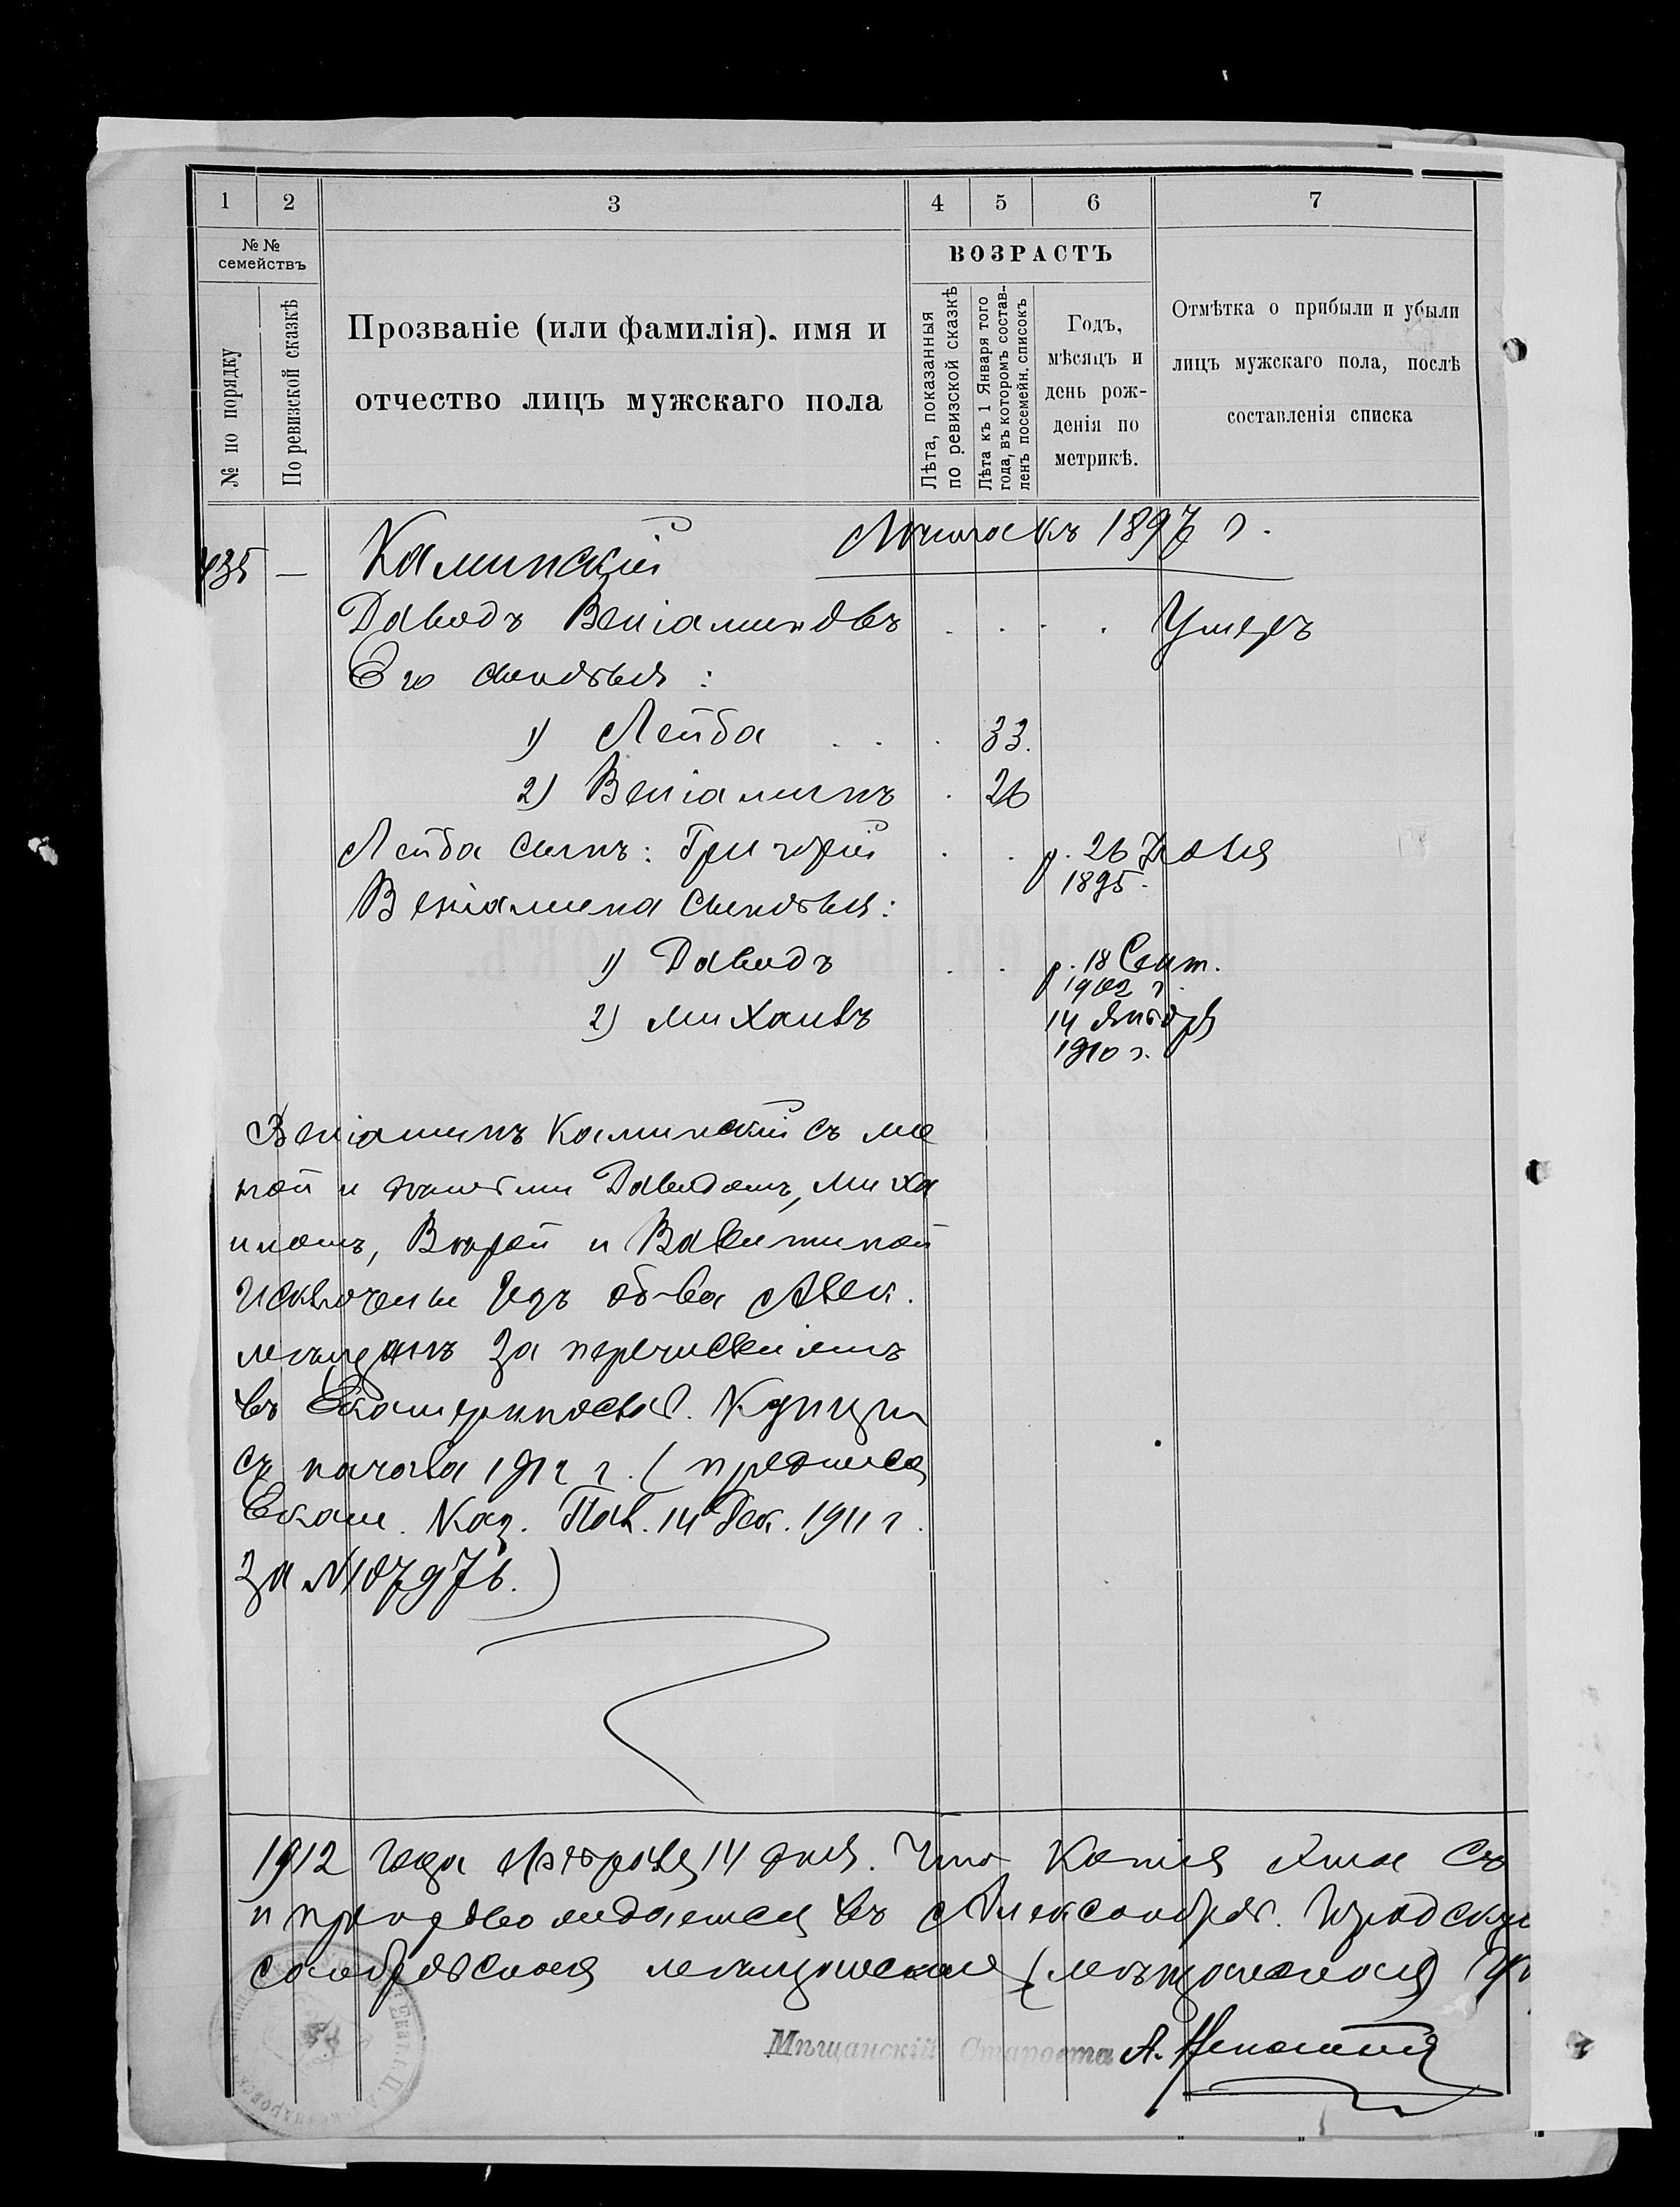 1 2 3 4 5 6 7
№ №
семействъ
ВОЗРАСТЪ
№ по порядку
По ревизской сказкѣ
Прозваніе (или фамилія). имя и
отчество лицъ мужскаго пола
Лѣта, показанныя
по ревизской сказкѣ
Лѣта къ 1 Января того
года, въ которомъ состав-
ленъ посемейн. списокъ
Годъ,
мѣсяцъ и
день рож-
денія по
метрикѣ.
Отмѣтка о прибыли и убыли
лицъ мужскаго пола, послѣ
составленія списка
къ 1897 г.
435 — Каминскій
Давидъ Веніаминовъ . . . . Умеръ
Его сыновья:
1) Лейба . . . 33.
2) Веніаминъ . 26
Лейба сынъ: Григорій . . р. 26 Іюля
1895.
Веніамина сыновья:
1) Давидъ . . р. 18 Сент.
1902 г.
2) Михаилъ 14 Января
1910 г.
Веніаминъ Каминскій съ же
ной и дѣтьми Давидомъ, Миха
иломъ, Вѣрой и Валентиной
исключены изъ об-ва Алек.
мѣщанъ за перечисленіемъ
въ Екатеринослав. Купцы
съ начала 1912 г. (предпис
Екат. Каз. Пал. 14 Дек. 1911 г.
за № 107976.)
1912 года Февраля 14 дня. Что Копія эта съ
въ Александров. Городск
мѣщанское (мѣщанская)
Мѣщанскій Староста А.